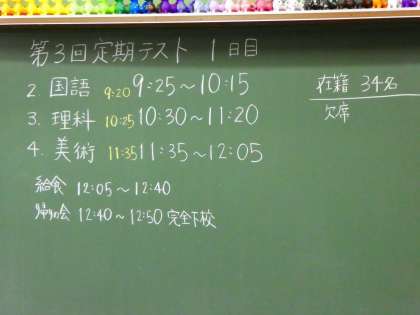 第3回定期テスト 1日目
2 国語 9:20 9:25～10:15
3. 理科 10:25 10:30～11:20
4. 美術 11:35 11:35～12:05
給食 12:05～12:40
帰りの会 12:40～12:50 完全下校
在籍 34名
欠席